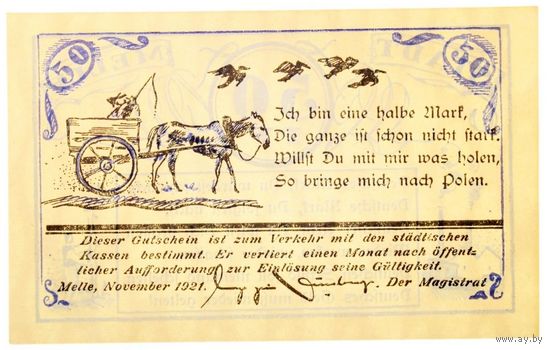 50 50
Ich bin eine halbe Mark,
Die ganze ist schon nicht stark.
Willst Du mit mir was holen,
So bringe mich nach Polen.
Dieser Gutschein ist zum Verkehr mit den städtischen
Kassen bestimmt. Er verliert einen Monat nach öffent-
licher Aufforderung zur Einlösung seine Gültigkeit.
Melle, November 1921. Der Magistrat
www.ay.by